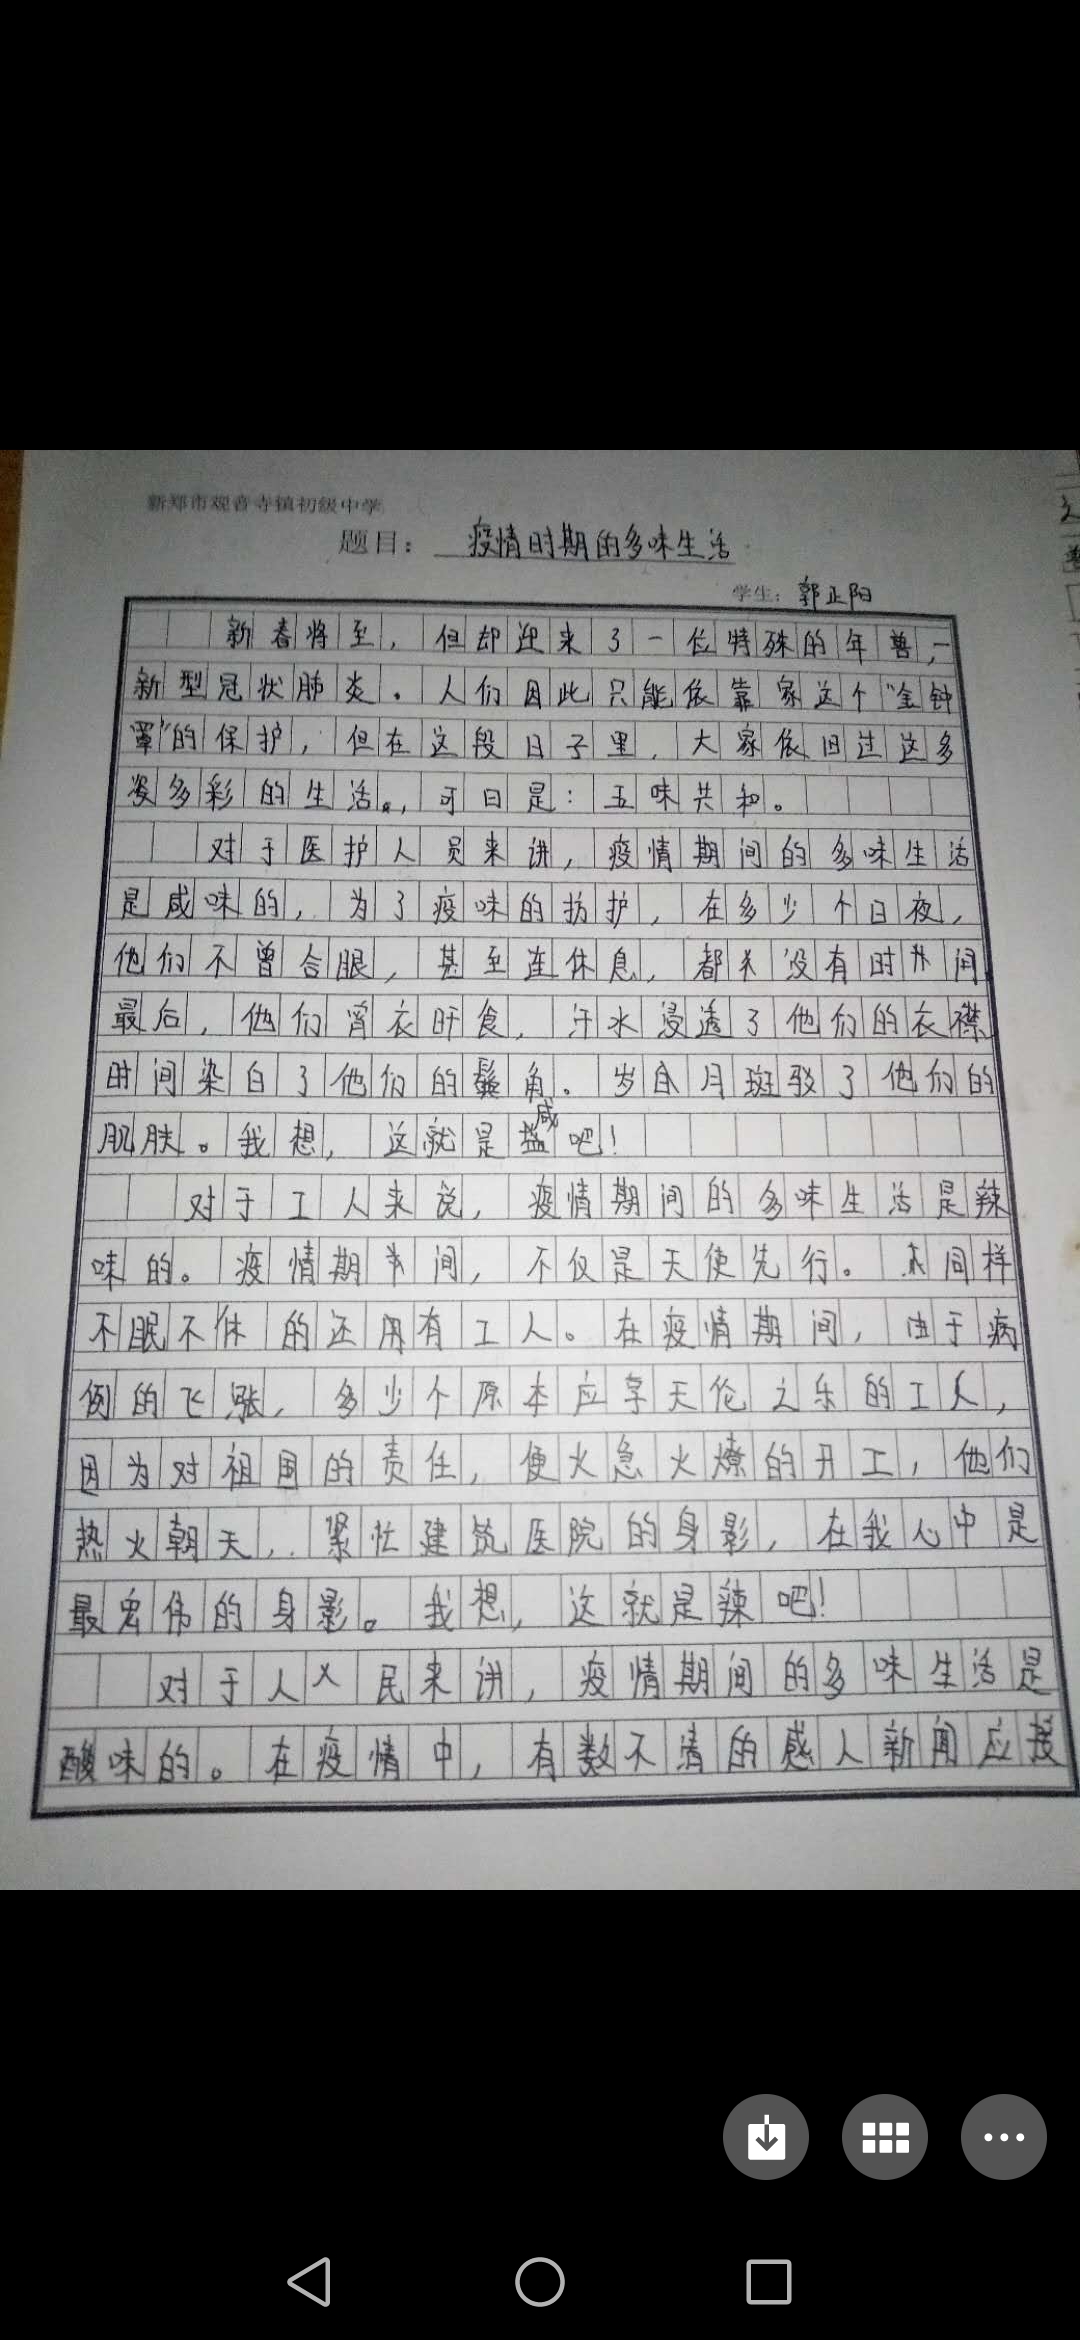 新郑市观音寺镇初级中学
题目：疫情时期的多味生活
学生：郭正阳
新春将至，但却迎来了一位特殊的年兽，—
新型冠状肺炎。人们因此只能依靠家这个“金钟
罩”的保护，但在这段日子里，大家依旧过这多
姿多彩的生活。，可曰是：五味共和。
对于医护人员来讲，疫情期间的多味生活
是咸味的，为了疫味的抗护，在多少个日夜，
他们不曾合眼，甚至连休息，都没有时间
最后，他们宵衣旰食，汗水浸透了他们的衣襟
时间染白了他们的鬓角。岁月斑驳了他们的
肌肤。我想，这就是咸吧！
对于工人来说，疫情期间的多味生活是辣
味的。疫情期间，不仅是天使先行。同样
不眠不休的还有工人。在疫情期间，由于病
例的飞涨，多少个原本应享天伦之乐的工人，
因为对祖国的责任，便火急火燎的开工，他们
热火朝天，紧忙建筑医院的身影，在我心中是
最宏伟的身影。我想，这就是辣吧！
对于人民来讲，疫情期间的多味生活是
酸味的。在疫情中，有数不清的感人新闻应接